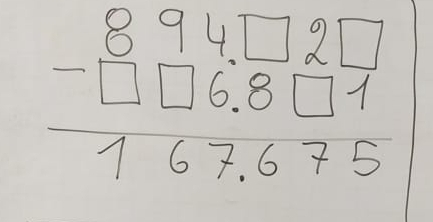 8 9 4.□ 2 □
- □ □ 6.8 □ 1
1 6 7.6 7 5